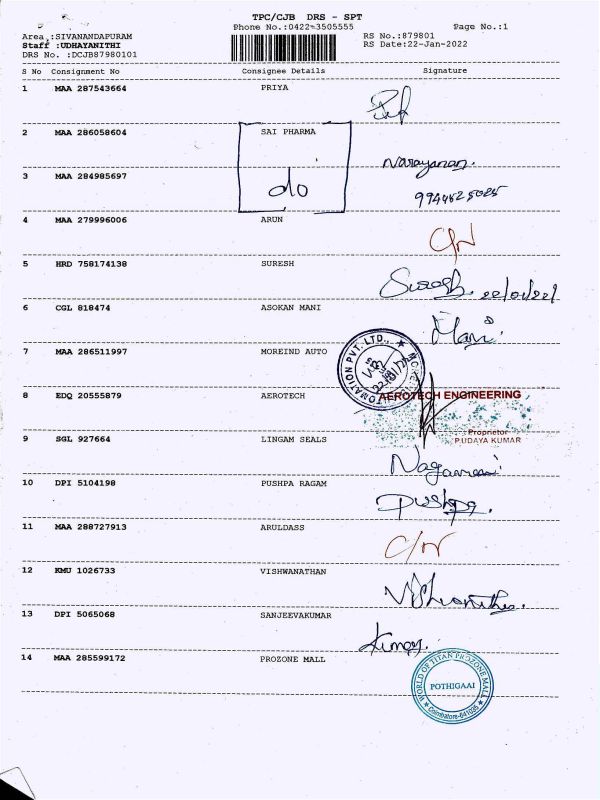 TPC/CJB DRS - SPT
Phone No.:0422-3505555
Page No.:1
Area :SIVANANDAPURAM
RS No.:879801
Staff :UDHAYANITHI
RS Date:22-Jan-2022
DRS No. :DCJB87980101
S No Consignment No Consignee Details Signature
1 MAA 287543664 PRIYA
2 MAA 286058604 SAI PHARMA
Narayanan.
3 MAA 284985697 do
9944625025
4 MAA 279996006 ARUN
C/N
5 HRD 758174138 SURESH
Suresh 22/01/22
6 CGL 818474 ASOKAN MANI
Mani
7 MAA 286511997 MOREIND AUTO
OMATION PVT. LTD., ★ MORE
8 EDQ 20555879 AEROTECH
AEROTECH ENGINEERING
Proprietor
P.UDAYA KUMAR
9 SGL 927664 LINGAM SEALS
Nagamani
10 DPI 5104198 PUSHPA RAGAM
Pushpa.
11 MAA 288727913 ARULDASS
C/N
12 KMU 1026733 VISHWANATHAN
13 DPI 5065068 SANJEEVAKUMAR
Kumar
14 MAA 285599172 PROZONE MALL
WORLD OF TITAN PROZONE MALL
POTHIGAAI
★ Coimbatore-641035 ★